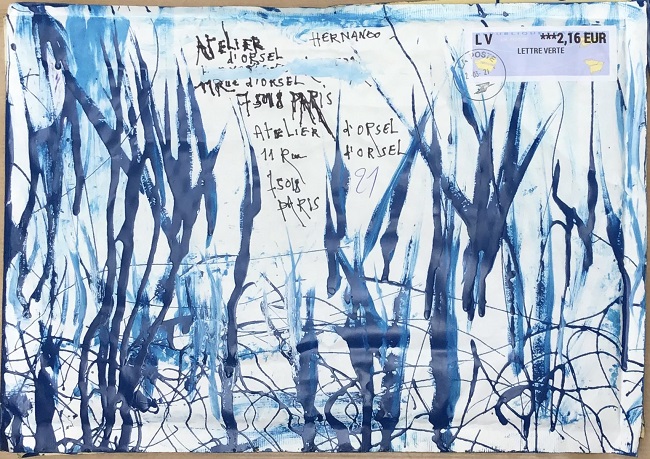 ATELIER
d'ORSEL
HERNANDO
11 Rue d'ORSEL
75018 PARIS
ATELIER d'OPSEL
11 Rue d'ORSEL
75018
PARIS
21
LV ***2,16 EUR
LETTRE VERTE